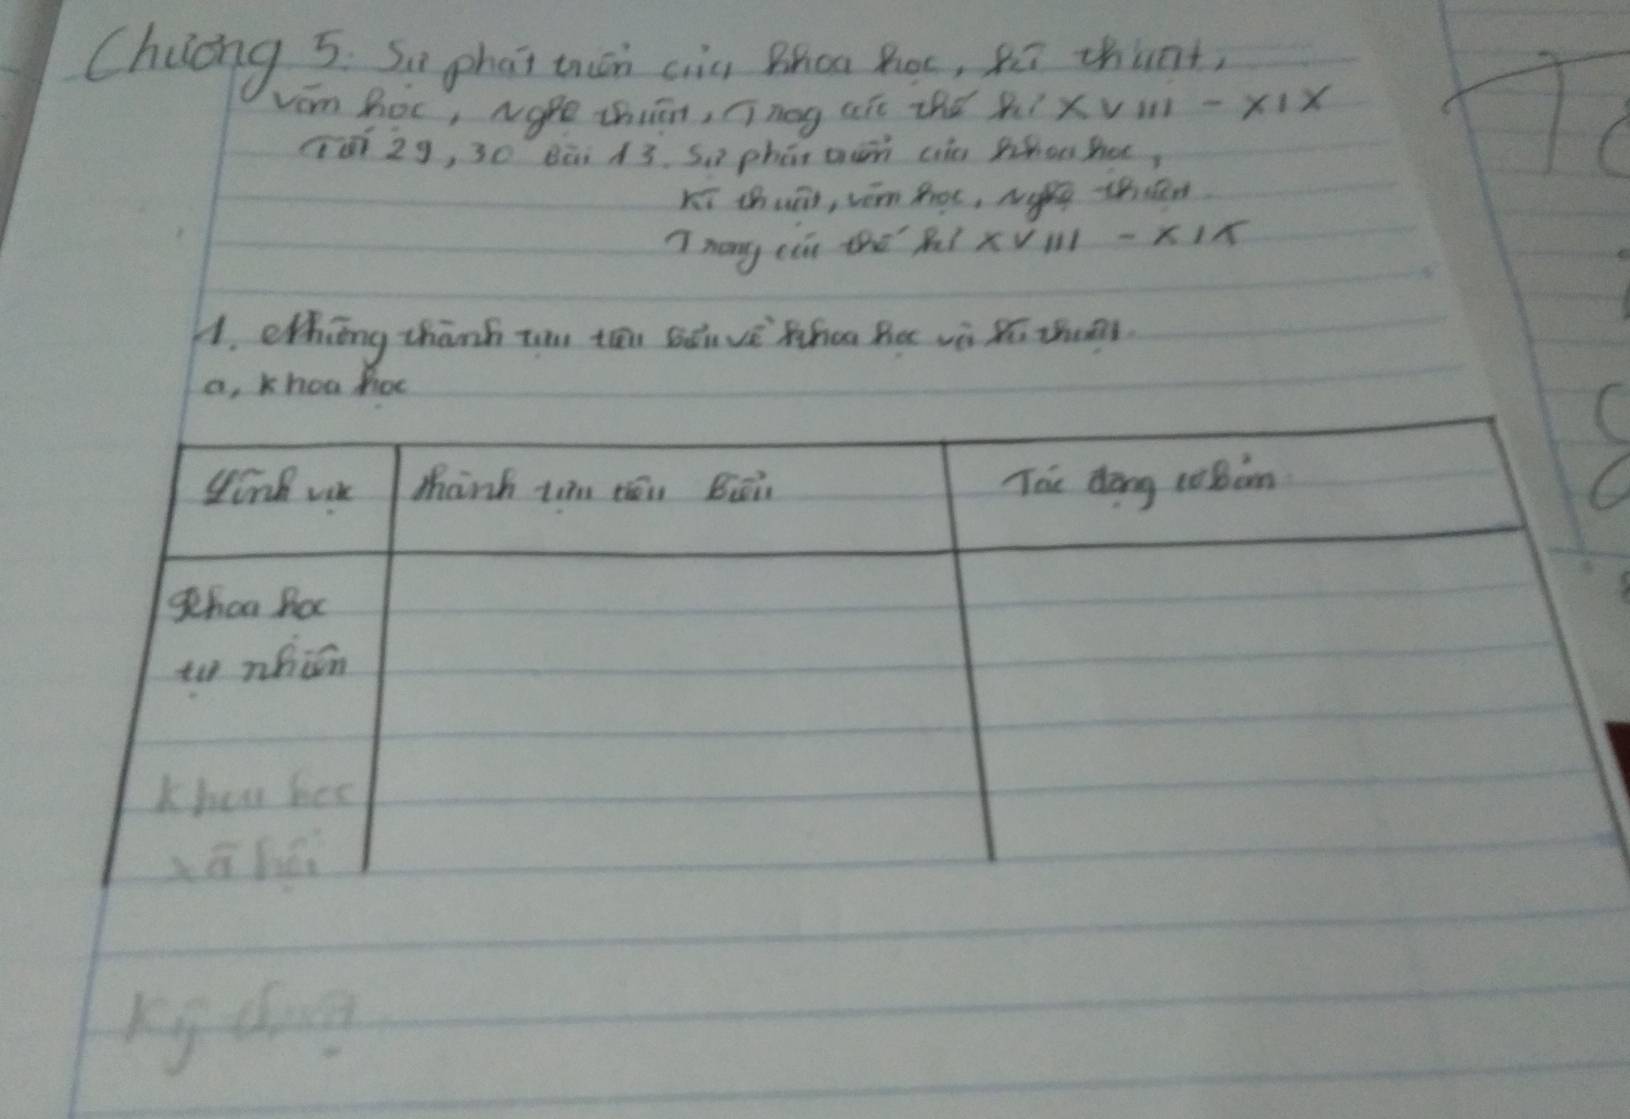 Chương 5. Sự phát triển của khoa học, kĩ thuật,
văn học, Nghệ thuật, Trog các thế kỉ XVIII - XIX
Tiết 29, 30 Bài 13. Sự phát triển của khoa học,
Kĩ thuật, văn học, Nghệ thuật
Trong các thế kỉ XVIII - XIX
1. Những thành tựu tiêu biểu về khoa học và kĩ thuật.
a, Khoa học
Lĩnh vực thành tựu tiêu biểu Tác động cơ bản
Khoa học
tự nhiên
Khoa học
xã hội
Kỹ thuật